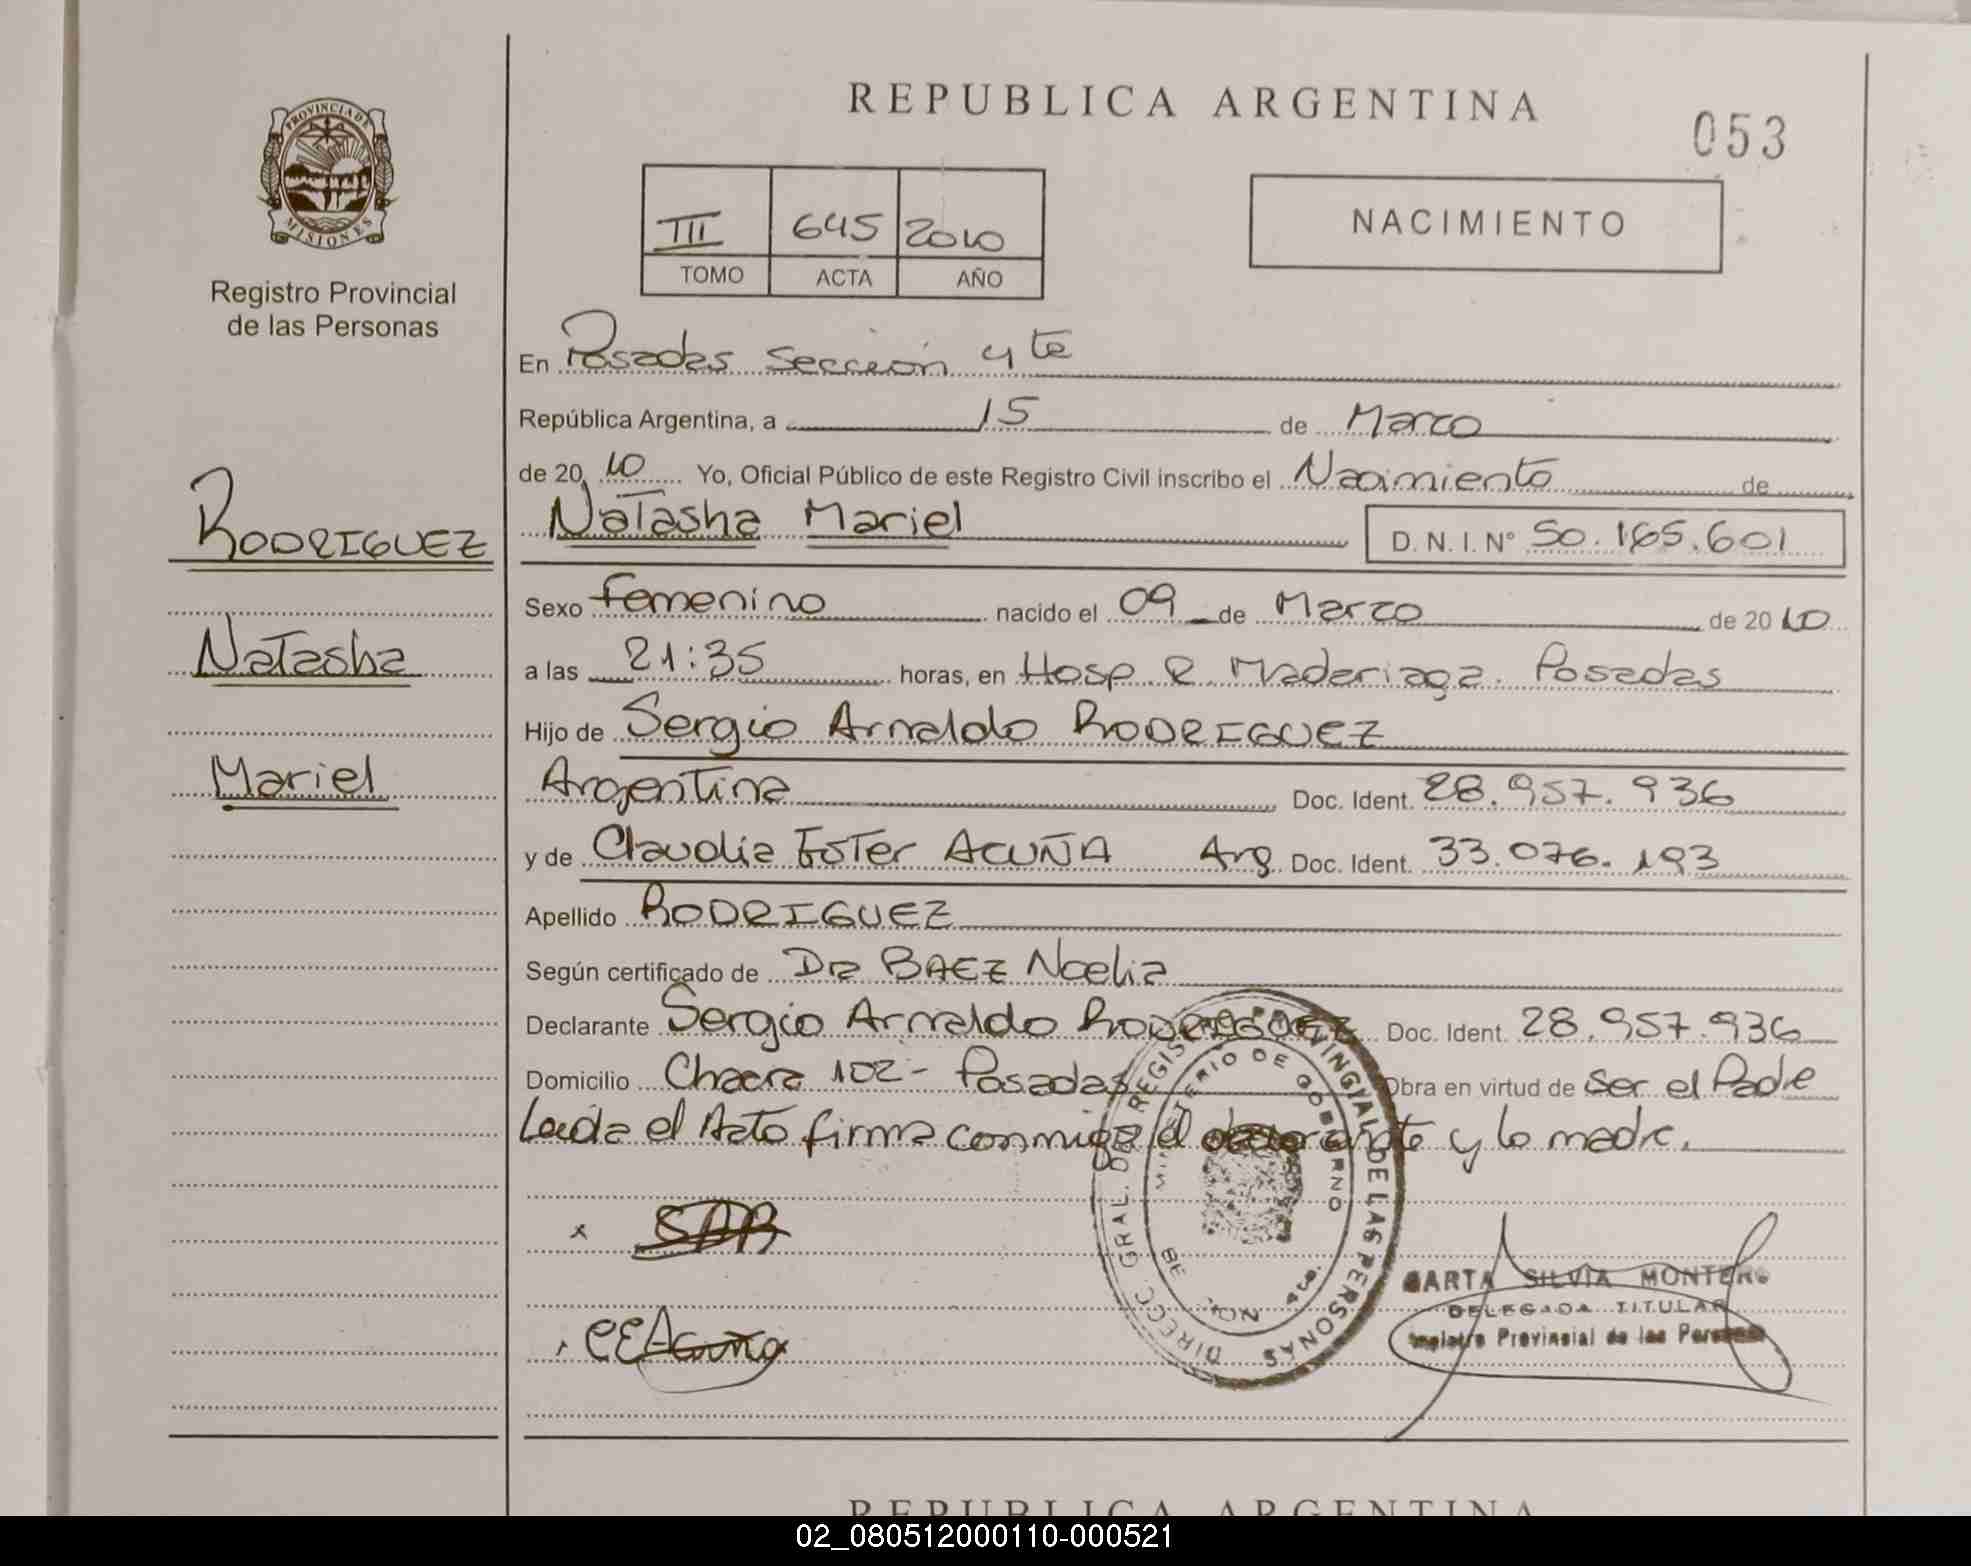 REPUBLICA ARGENTINA
053
PROVINCIA DE
MISIONES
Registro Provincial
de las Personas
III 645 2010
TOMO ACTA AÑO
NACIMIENTO
En Posadas Sección 4 te
República Argentina, a 15 de Marzo
de 20 10 Yo, Oficial Público de este Registro Civil inscribo el Nacimiento de
RODRIGUEZ
Natasha Mariel D.N.I. N° 50.165.601
Sexo Femenino nacido el 09 de Marzo de 20 10
Natasha
a las 21:35 horas, en Hosp. R. Madariaga. Posadas
Hijo de Sergio Arnaldo RODRIGUEZ
Mariel
Argentina Doc. Ident. 28.957.936
y de Claudia Ester ACUÑA Arg. Doc. Ident. 33.076.193
Apellido RODRIGUEZ
Según certificado de Dra BAEZ Noelia
Declarante Sergio Arnaldo RODRIGUEZ Doc. Ident. 28.957.936
Domicilio Chacra 102 - Posadas Obra en virtud de Ser el Padre
Leída el Acta firma conmigo el declarante y la madre.
DIRECC. GRAL. DEL REGISTRO PROVINCIAL DE LAS PERSONAS
MINISTERIO DE GOBIERNO
4ta.
x SAR
CEAcuña
MARTA SILVIA MONTERO
DELEGADA TITULAR
Registro Provincial de las Personas
REPUBLICA ARGENTINA
02_080512000110-000521